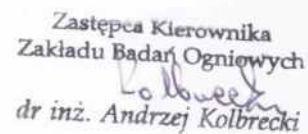 Zastępca Kierownika
Zakładu Badań Ogniowych
dr inż. Andrzej Kolbrecki